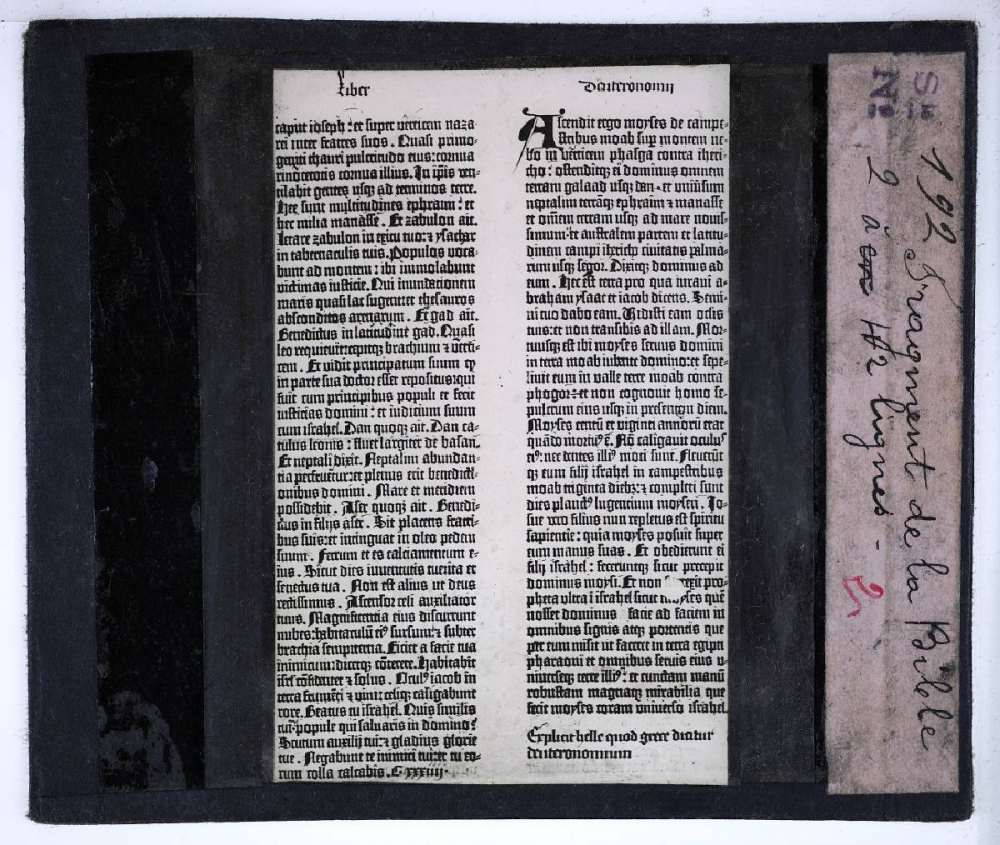 Liber Deuteronomii
caput ioseph: et super verticem naza
rei inter fratres suos. Quasi primo-
geniti thauri pulcritudo eius: cornua
rinocerotis cornua illius. In ip̄is ven-
tilabit gentes usq; ad terminos terre.
Hee sunt multitudines ephraim: et
hec milia manasse. Et zabulon ait.
Letare zabulon in exitu tuo: ⁊ ysachar
in tabernaculis tuis. Populos voca
bunt ad montem: ibi immolabunt
victimas iusticie. Qui inundationem
maris quasi lac sugent: et thesauros
absconditos arenarum. Et gad ait.
Benedictus in latitudine gad. Quasi
leo requieuit: cepitq; brachium ⁊ verti-
cem. Et vidit principatum suum ꝙ
in parte sua doctor esset repositus: qui
fuit cum principibus populi et fecit
iusticias domini: et iudicium suum
cum israhel. Dan quoq; ait. Dan ca-
tulus leonis: fluet largiter de basan.
Et neptali dixit. Neptalim abundan-
tia perfruetur: et plenus erit benedicti-
onibus domini. Mare et meridiem
possidebit. Aser quoq; ait. Benedi-
ctus in filijs aser. Sit placens fratri-
bus suis: et intinguat in oleo pedem
suum. Ferrum et es calciamentum e-
ius. Sicut dies iuuentutis tue ita et
senectus tua. Non est alius ut deus
rectissimus. Ascensor celi auxiliator
tuus. Magnificentia eius discurrunt
nubes: habitaculū eiꝰ sursum: ⁊ subter
brachia sempiterna. Eiciet a facie tua
inimicum: dicetq; cōterere. Habitabit
isrl̄ cōfidenter ⁊ solus. Oculꝰ iacob in
terra frumēti ⁊ vini: celiq; caligabunt
rore. Beatus tu israhel. Quis similis
tui popule qui saluaris in domino?
Scutum auxilij tui: ⁊ gladius glorie
tue. Negabunt te inimici tui: et tu eo-
rum colla calcabis. C xxxiiij.
Ascendit ergo moyses de campe-
stribus moab sup̱ montem ne-
bo in verticem phasga contra iheri-
cho: ostenditq; ei dominus omnem
terram galaad usq; dan. et uniūsum
neptalim terrāq; ephraim ⁊ manasse
et om̄em terram usq; ad mare nouis-
simum: et australem partem et latitu-
dinem campi ihericho ciuitatis palma-
rum usq; segor. Dixitq; dominus ad
eum. Hec est terra pro qua iuraui a-
braham ysaac et iacob dicens. Semi-
ni tuo dabo eam. Vidisti eam oculis
tuis: et non transibis ad illam. Mor-
tuusq; est ibi moyses seruus domini
in terra moab iubente domino: et sepe-
liuit eum in valle terre moab contra
phogor: et non cognouit homo se-
pulcrum eius usq; in presentem diem.
Moyses centū et viginti annorū erat
quādo mortuꝰ ē. Nō caligauit oculus
eiꝰ: nec dentes illiꝰ moti sunt. Fleuerūt
q; eum filij israhel in campestribus
moab triginta diebꝫ: ⁊ completi sunt
dies planctꝰ lugentium moysen. Io-
sue vero filius nun repletus est spiritu
sapientie: quia moyses posuit super
eum manus suas. Et obedierunt ei
filij israhel: feceruntq; sicut precepit
dominus moysi. Et non rexit pro-
pheta ultra i israhel sicut moyses quē
nosset dominus facie ad faciem in
omnibus signis atq; portentis que
per eum misit ut faceret in terra egipti
pharaoni et omnibus seruis eius u-
niuerseq; terre illiꝰ: et cunctam manū
robustam magnaq; mirabilia que
fecit moyses coram uniuerso israhel.
Explicit helle quod grece dicitur
deuteronomium
192 Fragment de la Bible
2 à 42 lignes -